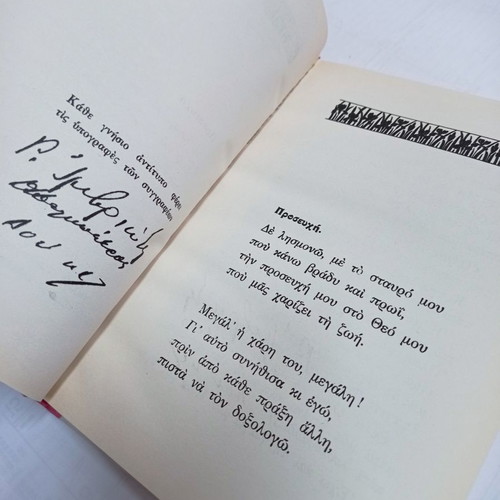 Κάθε γνήσιο ἀντίτυπο φέρει
τὶς ὑπογραφὲς τῶν συγγραφέων
Ρ. Ἰμβρικώ
Προσευχή.
Δὲ λησμονῶ, μὲ τὸ σταυρό μου
ποὺ κάνω βράδυ καὶ πρωΐ,
τὴν προσευχή μου στὸ Θεό μου
ποὺ μᾶς χαρίζει τὴ ζωή.
Μεγάλ' ἡ χάρη του, μεγάλη!
Γι' αὐτὸ συνήθισα κι ἐγώ,
πρὶν ἀπὸ κάθε πράξη ἄλλη,
πιστὰ νὰ τὸν δοξολογῶ.